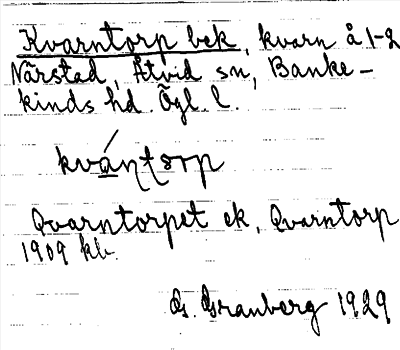 Kvarntorp bek, kvarn å 1-2
Närstad, Åtvid sn, Banke-
kinds hd Ögl. l.
kvántorp
Qvarntorpet ek, Qvarntorp
1909 kb.
G. Granberg 1929